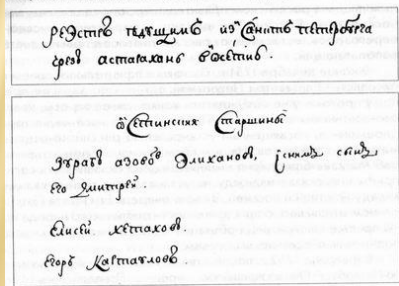 Реэстръ ѣдущимъ изъ Санктъ петербурга
чрезъ астарахань
Осетинския Старшины
Зурабъ азовъ Элихановъ, снимъ сынъ
его Дмитрей.
Елисей хетаховъ.
Егоръ